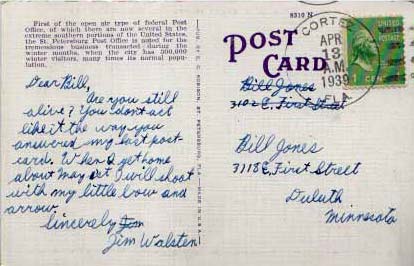 First of the open air type of federal Post
Office, of which there are now several in the
extreme southern portions of the United States,
the St. Petersburg Post Office is noted for the
tremendous business transacted during the
winter months, when the city has 200,000
winter visitors, many times its normal popu-
lation.
Dear Bill,
Are you still
alive? You dont act
like it the way you
answered my last post-
card. When I get home
about May 1st I will shoot
with my little bow and
arrow.
Sincerely Jim
Jim Walsten
8310 N
POST
CARD
CORTEZ
APR
13
A.M.
1939
FLA.
1 CENT
Bill Jones
3102 E. First Street
Bill Jones
3118 E. First Street
Duluth
Minnesota